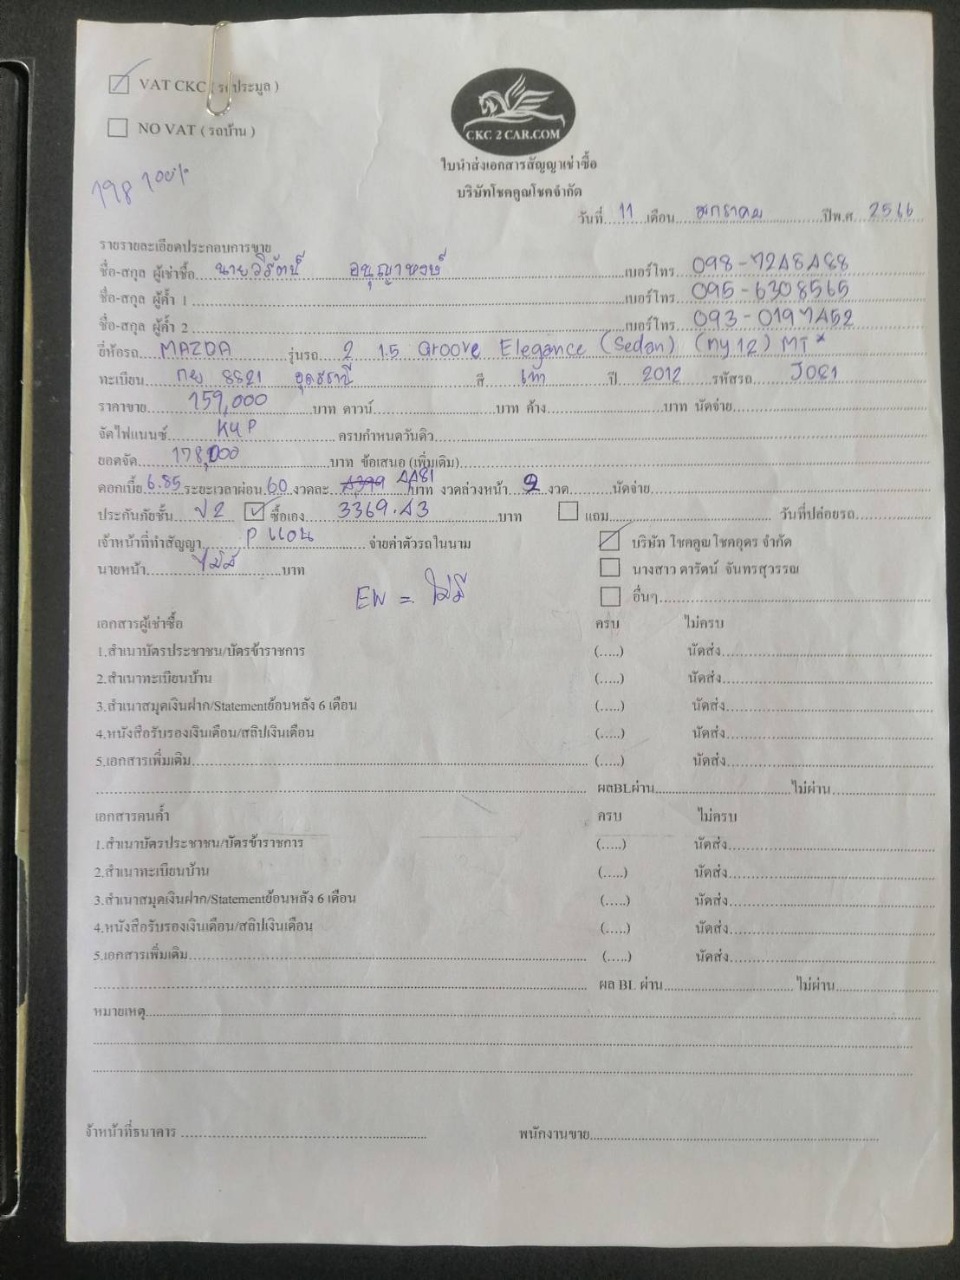 VAT CKC ( รถประมูล )
NO VAT ( รถบ้าน )
CKC 2 CAR.COM
ใบนำส่งเอกสารสัญญาเช่าซื้อ
บริษัทโชคคูณโชคจำกัด
198 100%
วันที่ 11 เดือน มกราคม ปีพ.ศ. 2566
รายรายละเอียดประกอบการขาย
ชื่อ-สกุล ผู้เช่าซื้อ นายวิรัตน์ อนุญาหงษ์ เบอร์โทร 098-7248488
ชื่อ-สกุล ผู้ค้ำ 1 เบอร์โทร 095-6308565
ชื่อ-สกุล ผู้ค้ำ 2 เบอร์โทร 093-0197452
ยี่ห้อรถ MAZDA รุ่นรถ 2 1.5 Groove Elegance (Sedan) (my12) MT *
ทะเบียน กย 8821 อุดรธานี สี เทา ปี 2012 รหัสรถ J081
ราคาขาย 159,000 บาท ดาวน์ บาท ค้าง บาท นัดจ่าย
จัดไฟแนนซ์ KKP ครบกำหนดวันดิว
ยอดจัด 178,000 บาท ข้อเสนอ (เพิ่มเติม)
ดอกเบี้ย 6.85 ระยะเวลาผ่อน 60 งวดละ 4399 4481 บาท งวดล่วงหน้า 2 งวด นัดจ่าย
ประกันภัยชั้น ป2 ซื้อเอง 3369.43 บาท แถม วันที่ปล่อยรถ
เจ้าหน้าที่ทำสัญญา P แอน จ่ายค่าตัวรถในนาม บริษัท โชคคูณโชคอุดร จำกัด
นายหน้า ไม่มี บาท นางสาว ดารัตน์ จันทรสุวรรณ
EW = ไม่มี อื่นๆ
เอกสารผู้เช่าซื้อ ครบ ไม่ครบ
1.สำเนาบัตรประชาชน/บัตรข้าราชการ (.....) นัดส่ง
2.สำเนาทะเบียนบ้าน (.....) นัดส่ง
3.สำเนาสมุดเงินฝาก/Statementย้อนหลัง 6 เดือน (.....) นัดส่ง
4.หนังสือรับรองเงินเดือน/สลิปเงินเดือน (.....) นัดส่ง
5.เอกสารเพิ่มเติม (.....) นัดส่ง
ผลBLผ่าน ไม่ผ่าน
เอกสารคนค้ำ ครบ ไม่ครบ
1.สำเนาบัตรประชาชน/บัตรข้าราชการ (.....) นัดส่ง
2.สำเนาทะเบียนบ้าน (.....) นัดส่ง
3.สำเนาสมุดเงินฝาก/Statementย้อนหลัง 6 เดือน (.....) นัดส่ง
4.หนังสือรับรองเงินเดือน/สลิปเงินเดือน (.....) นัดส่ง
5.เอกสารเพิ่มเติม (.....) นัดส่ง
ผล BL ผ่าน ไม่ผ่าน
หมายเหตุ
จ้าหน้าที่ธนาคาร พนักงานขาย